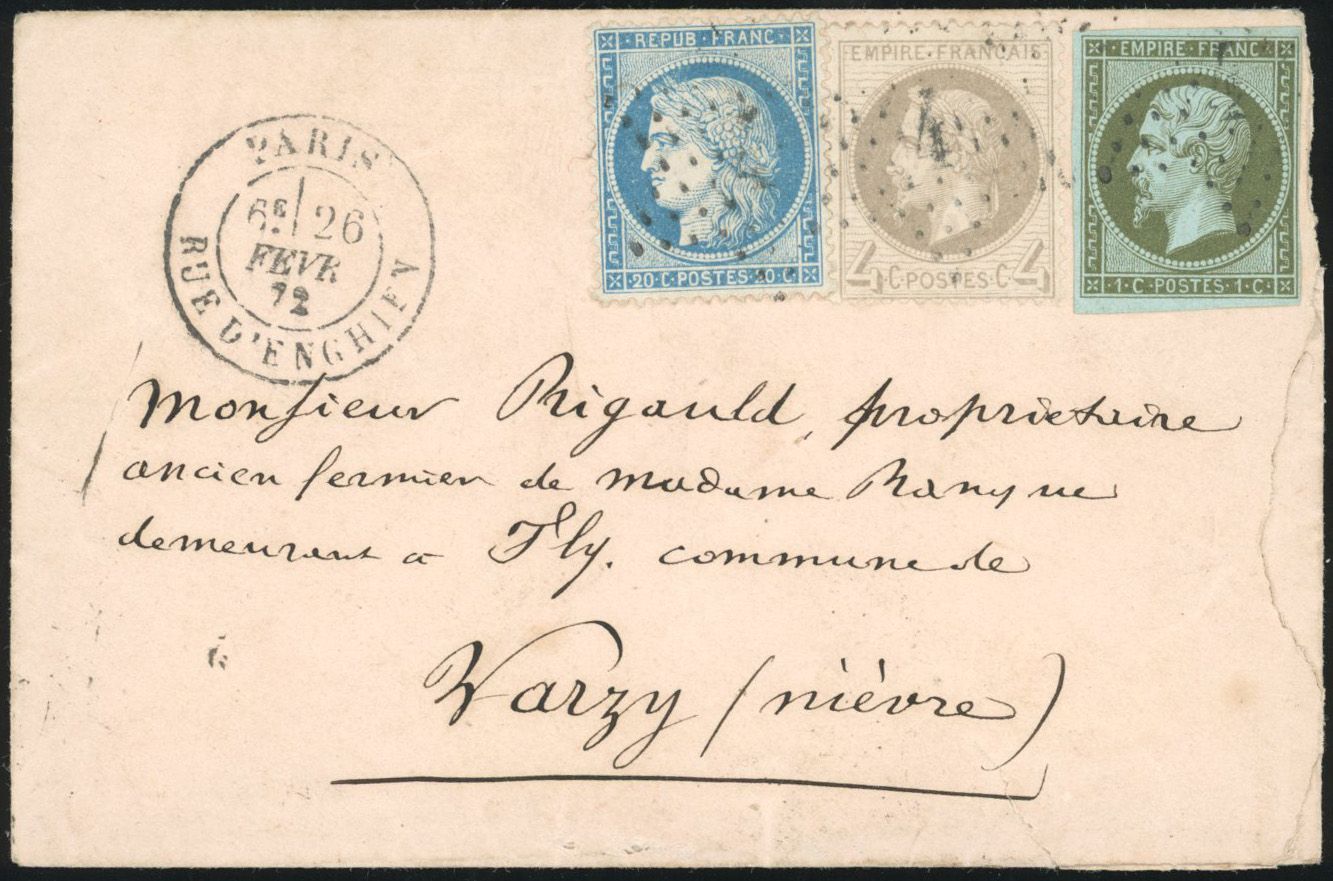 REPUB·FRANC
20·C·POSTES·20·C
EMPIRE·FRANÇAIS
4 C·POSTES·C 4
EMPIRE·FRANC
1·C·POSTES·1·C
4
PARIS
6E 26
FEVR
72
RUE D'ENGHIEN
Monsieur Rigauld, propriétaire
ancien fermier de Madame Ranque
demeurant à Fly. commune de
Varzy (nièvre)